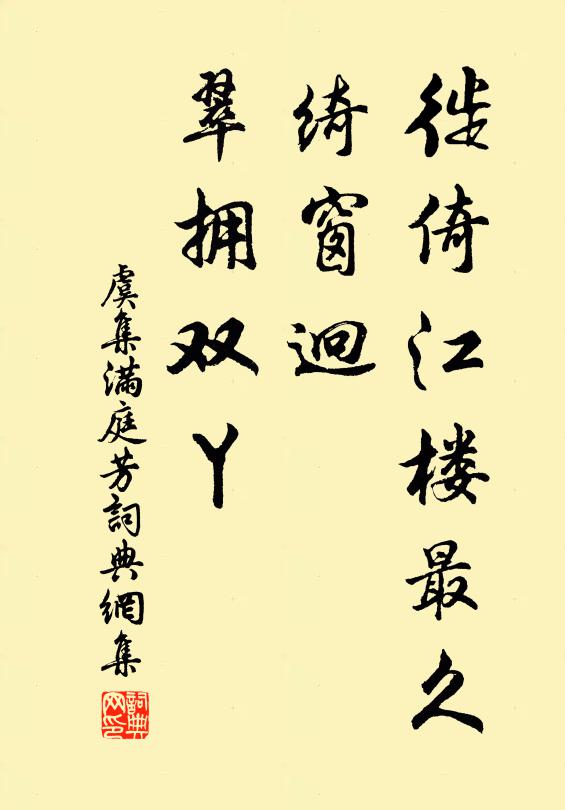 徙倚江楼最久
绮窗迥
翠拥双丫
虞集滿庭芳詞典網集
詞典网印